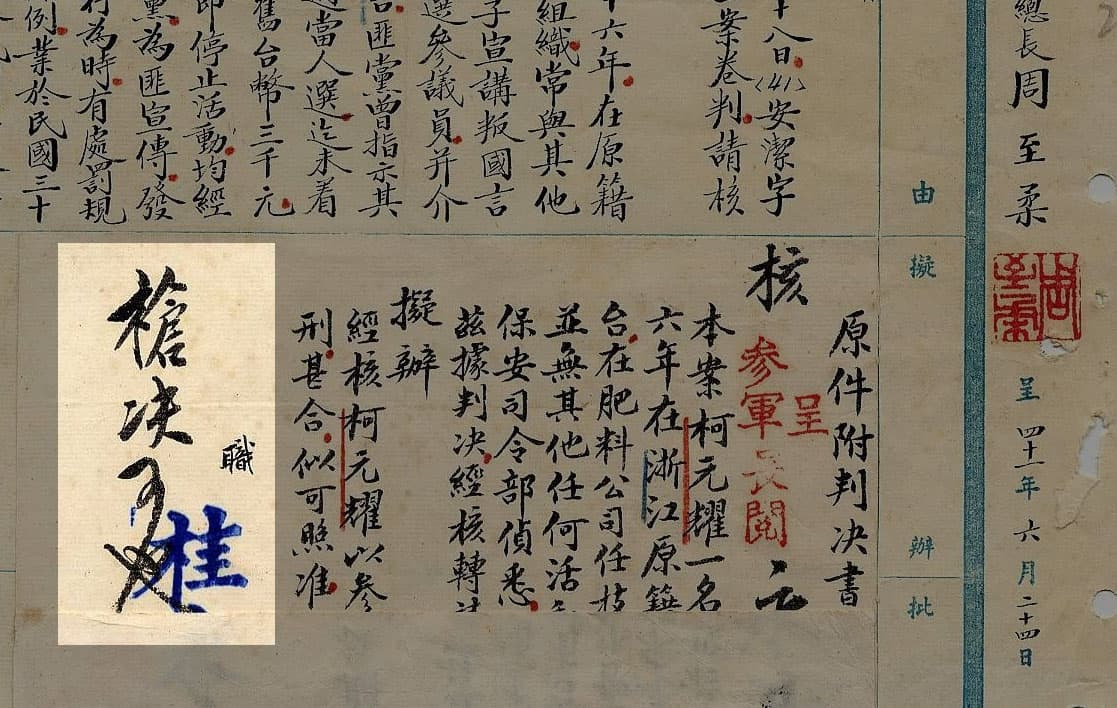 總長周至柔
周至柔
呈四十一年六月二十四日
由
擬
辦
批
十八日(41)安潔字
案卷判請核
六年在原籍
組織常與其他
子宣講叛國言
選參議員并介
匪黨曾指示其
當人選迄未着
舊台幣三千元
即停止活動均經
黨為匪宣傳發
行為時有處罰規
例業於民國三十
原件附判決書
核
呈
參軍長閱
本案柯元耀一名
六年在浙江原籍
台在肥料公司任技
並無其他任何活
保安司令部偵悉
茲據判決經核轉
擬辦
經核柯元耀以參
刑甚合似可照准
職
桂
槍決可